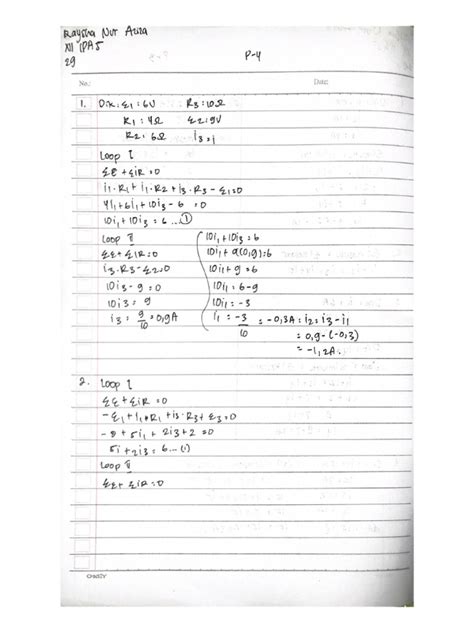 Raysha Nur Aura
XII IPA 5
29
P-4
No.:
Date:
1. Dik: ε1 : 6V R3 : 10Ω
R1 : 4Ω ε2 : 9V
R2 : 6Ω i3 = i
Loop I
Σε + ΣiR = 0
i1·R1 + i1·R2 + i3·R3 - ε1 = 0
4i1 + 6i1 + 10i3 - 6 = 0
10i1 + 10i3 = 6 ... ①
Loop II
Σε + ΣiR = 0
i3·R3 - ε2 = 0
10i3 - 9 = 0
10i3 = 9
i3 = 9/10 = 0,9A
10i1 + 10i3 = 6
10i1 + 9(0,9) = 6
10i1 + 9 = 6
10i1 = 6-9
10i1 = -3
i1 = -3/10 = -0,3A : i2 = i3 - i1
= 0,9 - (-0,3)
= -1,2A
2. Loop I
Σε + ΣiR = 0
-ε1 + i1·R1 + i3·R3 + ε3 = 0
-8 + 5i1 + 2i3 + 2 = 0
5i + 2i3 = 6 ... (1)
Loop II
Σε + ΣiR = 0